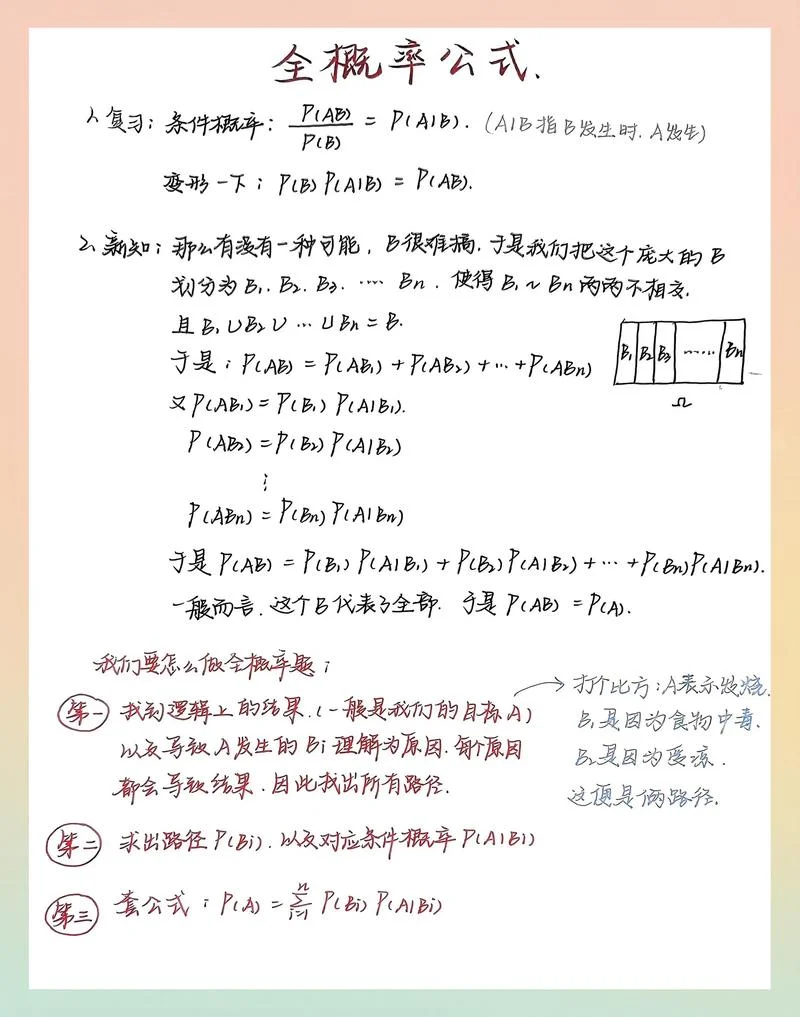 全概率公式.
1、复习：条件概率：P(AB)/P(B) = P(A|B). (A|B指B发生时,A发生)
变形一下：P(B)P(A|B) = P(AB).
2、新知：那么有没有一种可能，B很难搞，于是我们把这个庞大的B
划分为B₁、B₂、B₃、…… Bn，使得B₁~Bn两两不相交.
且B₁∪B₂∪…∪Bn=B.
于是：P(AB)=P(AB₁)+P(AB₂)+…+P(ABn)
B₁ B₂ B₃ …… Bn
Ω
又P(AB₁)=P(B₁)P(A|B₁).
P(AB₂)=P(B₂)P(A|B₂)
⋮
P(ABn)=P(Bn)P(A|Bn)
于是P(AB)=P(B₁)P(A|B₁)+P(B₂)P(A|B₂)+…+P(Bn)P(A|Bn).
一般而言，这个B代表了全部. 于是P(AB)=P(A).
我们要怎么做全概率题：
第一 找到逻辑上的结果.(一般是我们的目标A)
以及导致A发生的Bi理解为原因.每个原因
都会导致结果.因此找出所有路径.
打个比方：A表示发烧.
B₁是因为食物中毒.
B₂是因为受冻.
这便是俩路径.
第二 求出路径P(Bi).以及对应条件概率P(A|Bi)
第三 套公式：P(A)=∑ⁿᵢ₌₁ P(Bi)P(A|Bi)